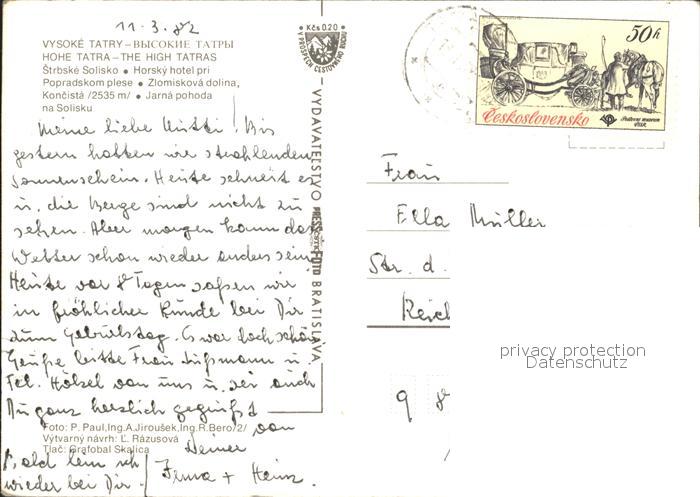 11.3.82
VYSOKÉ TATRY – ВЫСОКИЕ ТАТРЫ
HOHE TATRA – THE HIGH TATRAS
Štrbské Solisko • Horský hotel pri
Popradskom plese • Zlomisková dolina,
Končistá /2535 m/ • Jarná pohoda
na Solisku
Kčs 0,20
V PROSPECH CESTOVNÉHO RUCHU
50h
Československo
Poštovní muzeum
Meine liebe Mutti! Bis
gestern hatten wir strahlenden
Sonnenschein. Heute schneit es
u. die Berge sind nicht zu
sehen. Aber morgen kann das
Wetter schon wieder anders sein.
Heute vor 8 Tagen saßen wir
in fröhlicher Runde bei Dir
zum Geburtstag. Es war doch schön
Grüße bitte Frau Süßmann u.
Frl. Hölzel von uns u. sei auch
Du ganz herzlich gegrüßt
von
Deiner
Irma + Heinz.
Bald bin ich
wieder bei Dir.
VYDAVATEĽSTVO PRESSFOTO BRATISLAVA
Frau
Ella Müller
Str. d.
Reich
9 8
privacy protection
Datenschutz
Foto: P. Paul, Ing.A.Jiroušek, Ing.R.Bero/2/
Výtvarný návrh: Ľ. Rázusová
Tlač: Grafobal Skalica